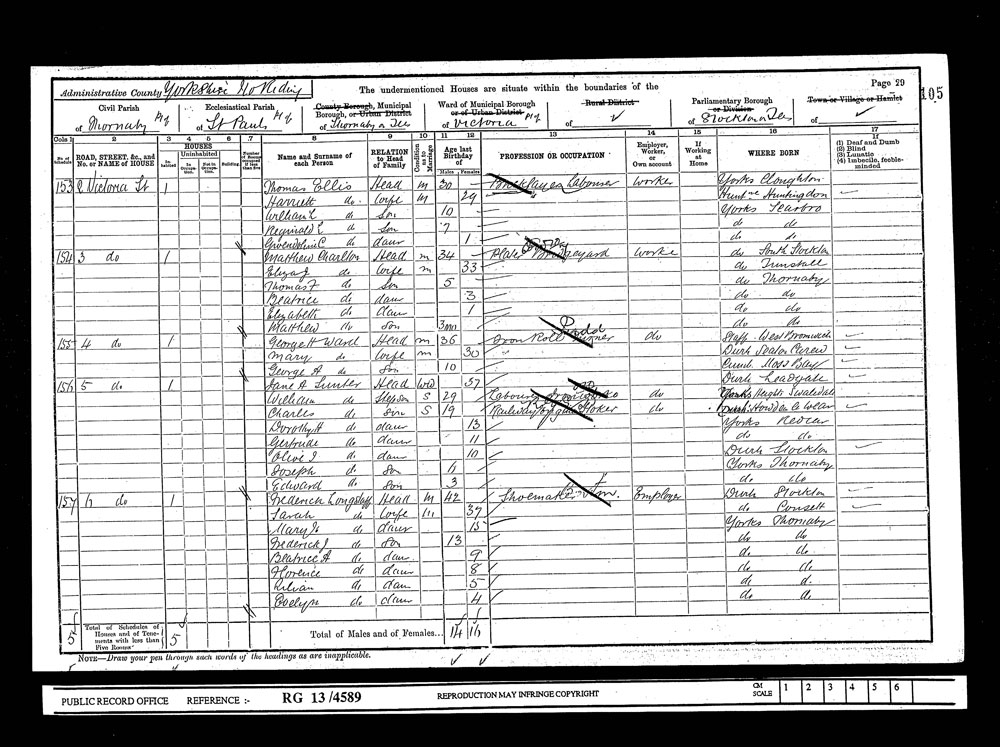 Administrative County Yorkshire No Riding
The undermentioned Houses are situate within the boundaries of the
Page 29
105
Civil Parish of Thornaby
Ecclesiastical Parish of St Pauls
County Borough, Municipal Borough, or Urban District of Thornaby on Tees
Ward of Municipal Borough or of Urban District of Victoria
Rural District of
Parliamentary Borough or Division of Stockton on Tees
Town or Village or Hamlet of
Cols 1 2 3 4 5 6 7 8 9 10 11 12 13 14 15 16 17
No. of Schedule
ROAD, STREET, &c., and No. or NAME of HOUSE
HOUSES
Inhabited
Uninhabited
In Occupation.
Not in Occupation.
Building.
Number of Rooms occupied if less than five
Name and Surname of each Person
RELATION to Head of Family
Condition as to Marriage
Age last Birthday of
Males Females
PROFESSION OR OCCUPATION
Employer, Worker, or Own account
If Working at Home
WHERE BORN
(1) Deaf and Dumb
(2) Blind
(3) Lunatic
(4) Imbecile, feeble-minded
153 2 Victoria St 1 Thomas Ellis Head m 30 Labourer worker Yorks Cloughton
Harriett do wife m 29 Huntingdon
William do Son 10 Yorks Scarbro
Reginald do Son 7 do do
do daur 1 do do
154 3 do 1 Matthew Charlton Head m 34 do South Stockton
Eliza J do wife m 33 do Tunstall
Thomas F do Son 5 do Thornaby
Beatrice do daur 3 do do
Elizabeth do daur 1 do do
Matthew do Son 3 do do
155 4 do 1 George H Ward Head m 36 Iron Roll Turner do Staff West Bromwich
Mary do wife m 30 Durh Seaton Carew
George A do Son 10 Cumb Moss Bay
156 5 do 1 Jane A Head wd 37 Durh
William do Stepson S 29 do
Charles do Son S 19 Railway Stoker do Durh Howden le Wear
Dorothy H do daur 13 Yorks Redcar
Gertrude do daur 11 do do
Olive J do daur 10 Durh Stockton
Joseph do Son 4 Yorks Thornaby
Edward do Son 3 do do
157 6 do 1 Frederick Longstaff Head m 42 Shoemaker Employer Durh Stockton
Sarah do wife m 39 do Consett
Mary J do daur 15 Yorks Thornaby
Frederick J do Son 13 do do
Beatrice A do daur 9 do do
Florence do daur 8 do do
Lilian do daur 5 do do
Evelyn do daur 4 do do
5 Total of Schedules of Houses and of Tenements with less than Five Rooms 5
Total of Males and of Females... 14 16
NOTE—Draw your pen through such words of the headings as are inapplicable.
PUBLIC RECORD OFFICE REFERENCE :- RG 13/4589 REPRODUCTION MAY INFRINGE COPYRIGHT CM SCALE 1 2 3 4 5 6